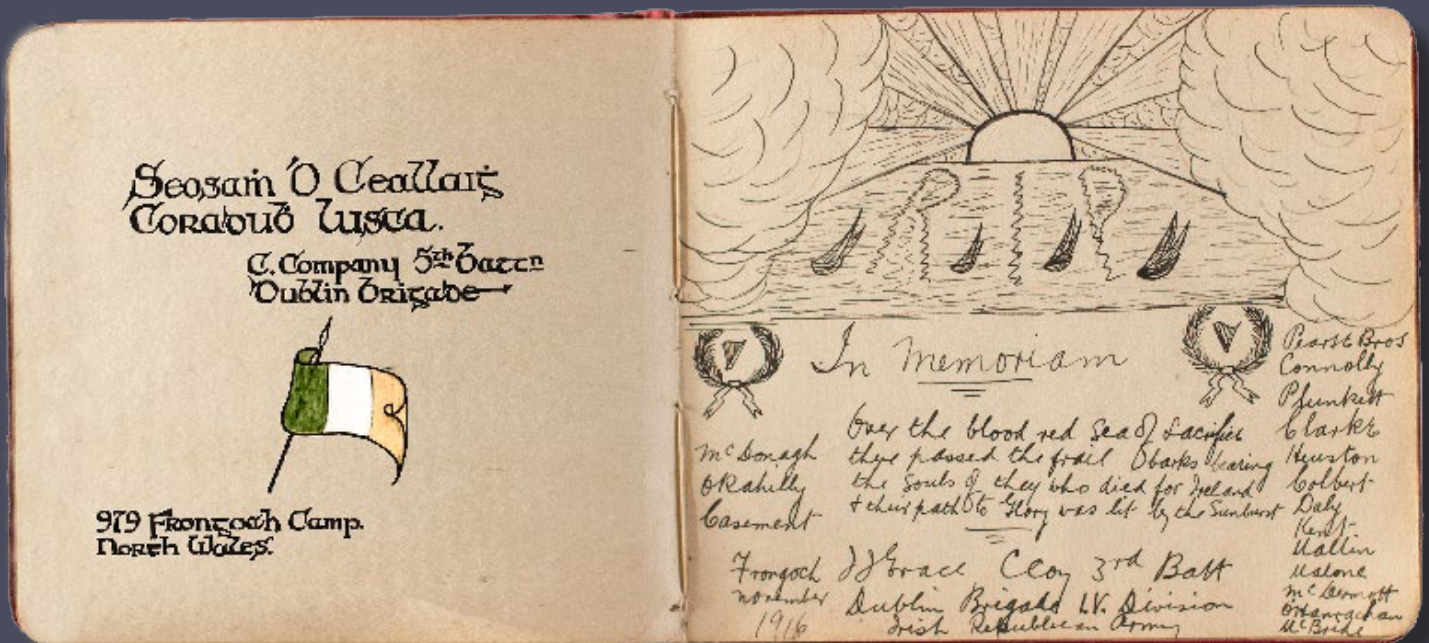 Seosaṁ Ó Ceallaiġ
Coraduḃ Lusca.
C. Company 5th Battn
Dublin Brigade
979 Frongoch Camp.
North Wales.
RIP
In Memoriam
Over the blood red sea of Sacrifice
there passed the frail barks bearing
the Souls of they who died for Ireland
& their path to Glory was lit by the Sunburst
McDonagh
ORahilly
Casement
Pearse Bros
Connolly
Plunkett
Clarke
Heuston
Colbert
Daly
Kent
Mallin
Malone
McDermott
McBride
Frongoch
November
1916
JJ Grace CCoy 3rd Batt
Dublin Brigade I.V. Division
Irish Republican Army